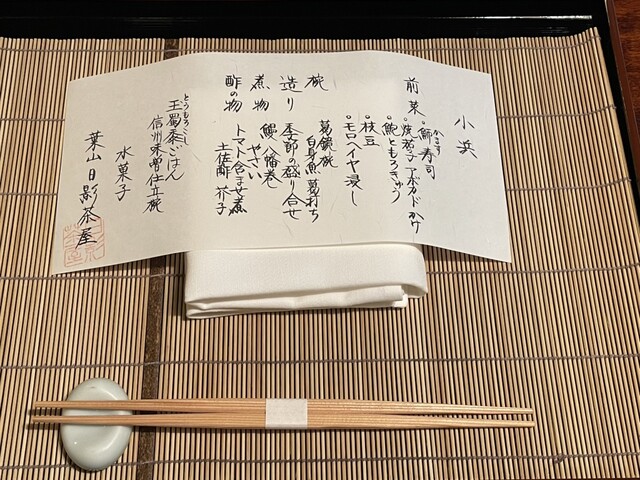 小浜
前菜
かます
・魳寿司
・焼茄子アボカドかけ
・鮑ともろきゅう
・枝豆
・モロヘイヤ浸し
椀 葛鏡椀
白身魚葛打ち
造り 季節の盛り合せ
煮物 鰻八幡巻
やさい
トマト含ませ煮
酢の物 土佐酢 芥子
とうもろこし
玉蜀黍ごはん
信州味噌仕立椀
水菓子
葉山日影茶屋